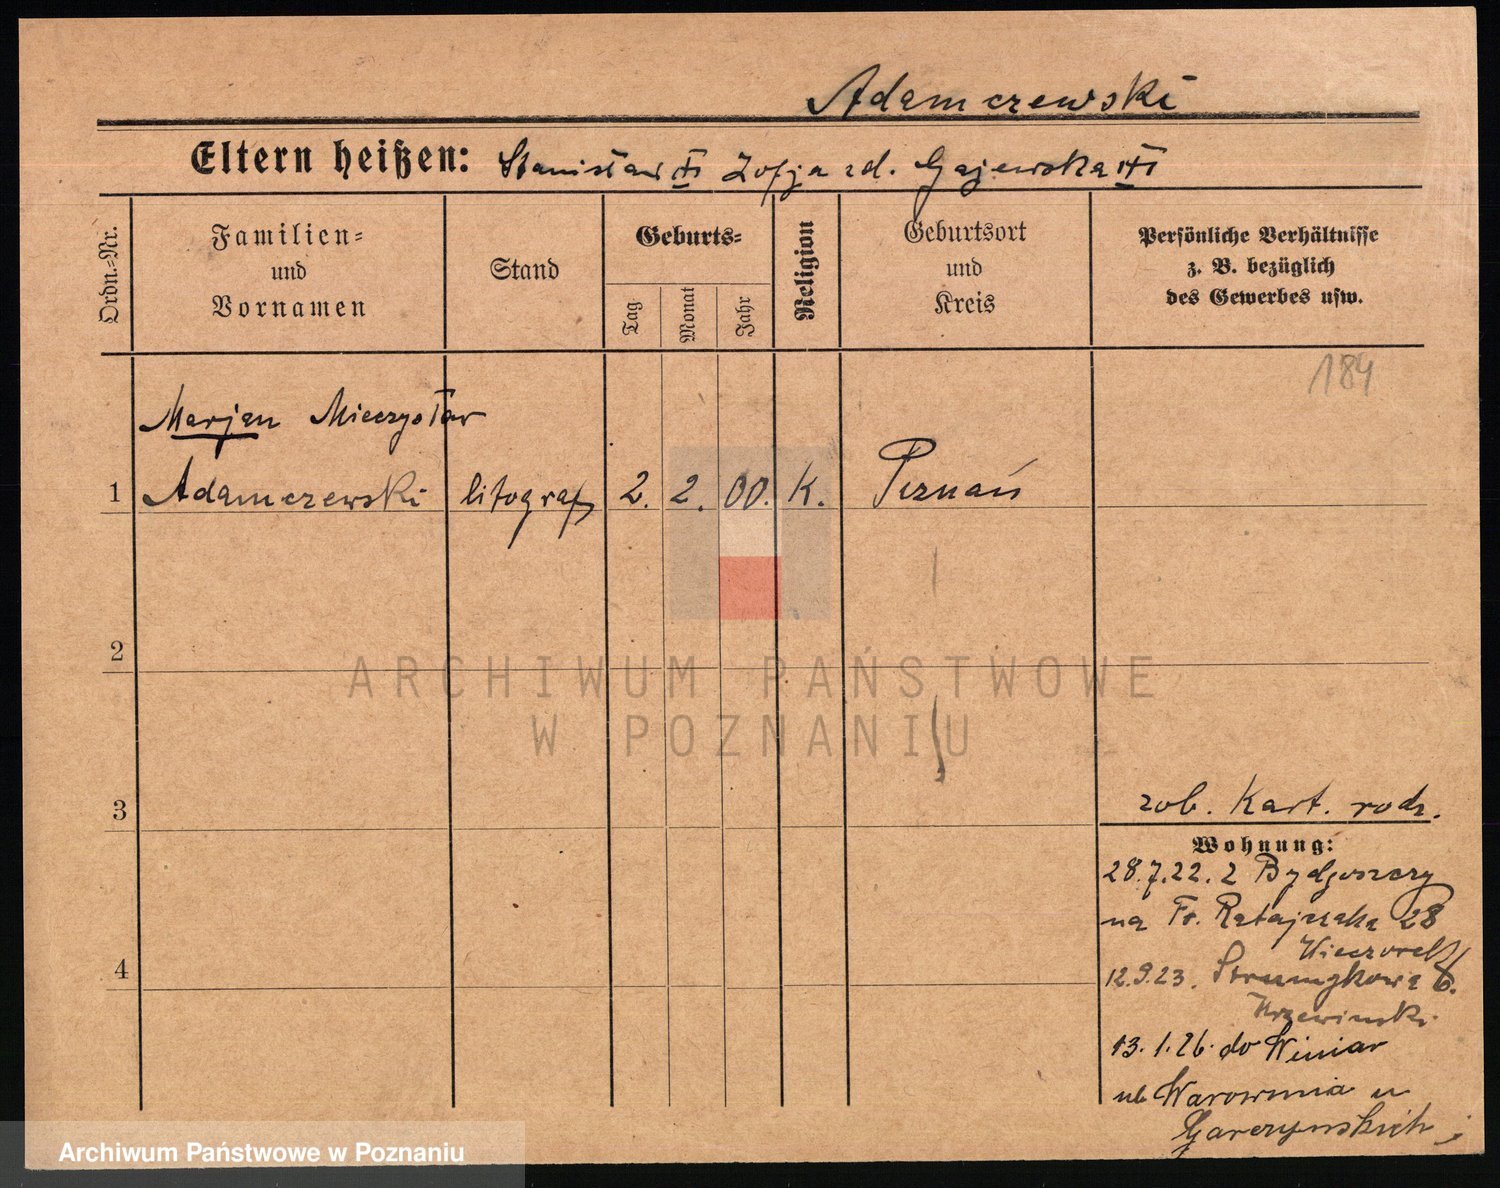 Adamczewski
Eltern heißen: Stanisław Zofja zd. Gajewska
Ordn.-Nr.
Familien-
und
Vornamen
Stand
Geburts-
Tag
Monat
Jahr
Religion
Geburtsort
und
Kreis
Persönliche Verhältnisse
z. B. bezüglich
des Gewerbes usw.
184
Marjan Mieczysław
1 Adamczewski litograf 2. 2. 00. K. Poznań
2
ARCHIWUM PAŃSTWOWE
W POZNANIU
3
zob. Kart. rodz.
Wohnung:
28.7.22. z Bydgoszczy
na Fr. Ratajczaka 28
Wieczorek
4
12.9.23. Strumykowa 6.
Krzewinski
13.1.26. do Winiar
ul. Warowna u
Garczynskich
Archiwum Państwowe w Poznaniu